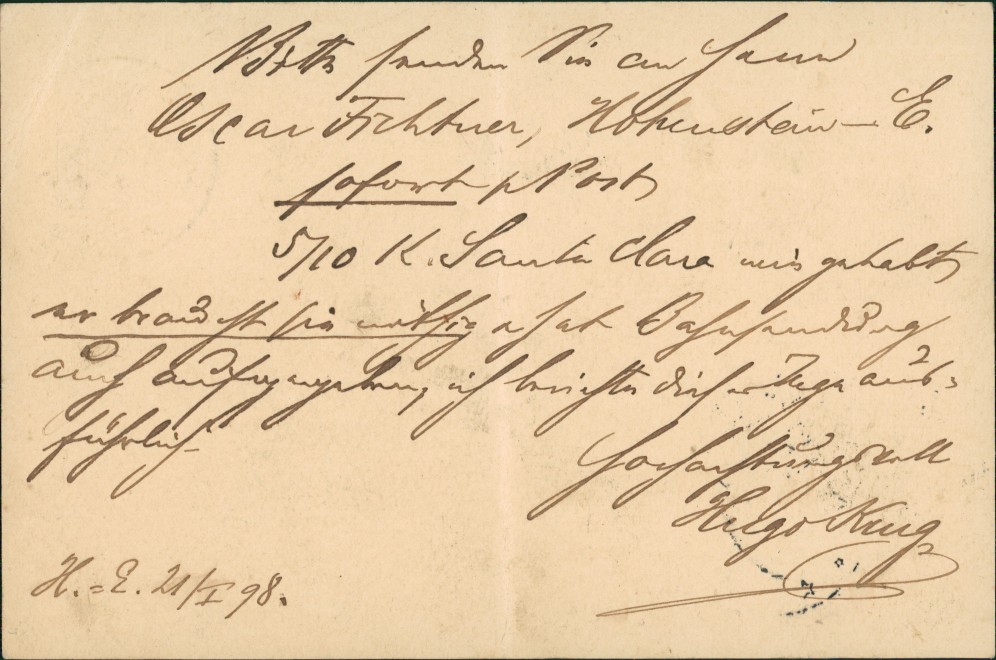 Bitte senden Sie an Herrn
Oscar Fichtner, Hohenstein-E.
sofort p Post
5/10 K. Santa Clara wie gehabt
er braucht sie nöthig u hat Bahnsendung
auch aufgegeben, ich berichte dieser Tage aus-
führlich
Hochachtungsvoll
Hugo Krug
H.=E. 21/I 98.